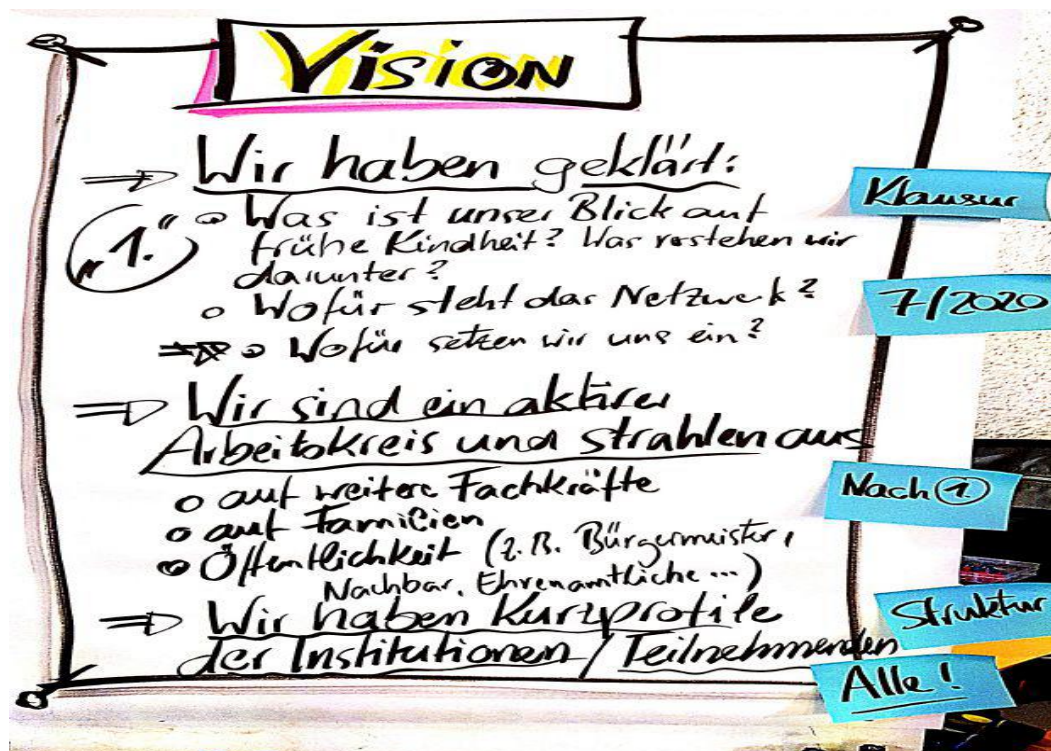 Vision
⇒ Wir haben geklärt:
„1."
o Was ist unser Blick auf
frühe Kindheit? Was verstehen wir
darunter?
o Wofür steht das Netzwerk?
⇒ o Wofür setzen wir uns ein?
Klausur
7/2020
⇒ Wir sind ein aktiver
Arbeitskreis und strahlen aus
o auf weitere Fachkräfte
o auf Familien
o Öffentlichkeit (z.B. Bürgermeister,
Nachbar, Ehrenamtliche ...)
Nach ①
⇒ Wir haben Kurzprofile
der Institutionen / Teilnehmenden
Struktur
Alle!